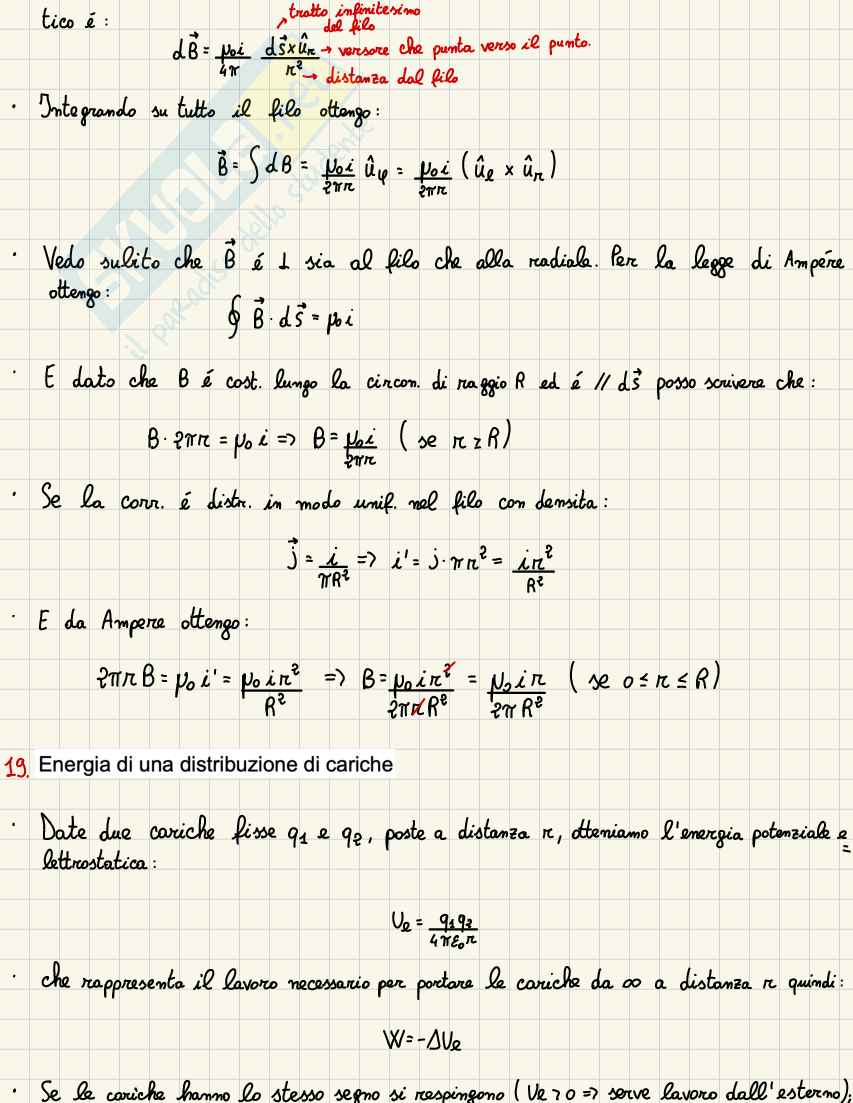 tico é :
tratto infinitesimo
del filo
dB⃗ = μ₀i/4π ds⃗ x û_r/r² → versore che punta verso il punto.
→ distanza dal filo
· Integrando su tutto il filo ottengo :
B⃗ = ∫ dB = μ₀i/2πr û_φ = μ₀i/2πr ( û_e x û_r )
· Vedo subito che B⃗ é ⊥ sia al filo che alla radiale. Per la legge di Ampére
ottengo :
∮ B⃗ · ds⃗ = μ₀i
· E dato che B é cost. lungo la circon. di raggio R ed é // ds⃗ posso scrivere che :
B · 2πr = μ₀ i => B = μ₀i/2πr ( se r ≥ R )
· Se la corr. é distr. in modo unif. nel filo con densita :
j⃗ = i/πR² => i' = j · πr² = ir²/R²
· E da Ampere ottengo :
2πr B = μ₀ i' = μ₀ i r²/R² => B = μ₀ i r²/2πr R² = μ₀ i r/2π R² ( se 0 ≤ r ≤ R )
19. Energia di una distribuzione di cariche
· Date due cariche fisse q₁ e q₂, poste a distanza r, otteniamo l'energia potenziale e
lettrostatica :
U_e = q₁q₂/4πε₀r
· che rappresenta il lavoro necessario per portare le cariche da ∞ a distanza r quindi :
W = -ΔU_e
· Se le cariche hanno lo stesso segno si respingono ( Ue > 0 => serve lavoro dall'esterno),
SKUOLA.net
il paradiso dello studente